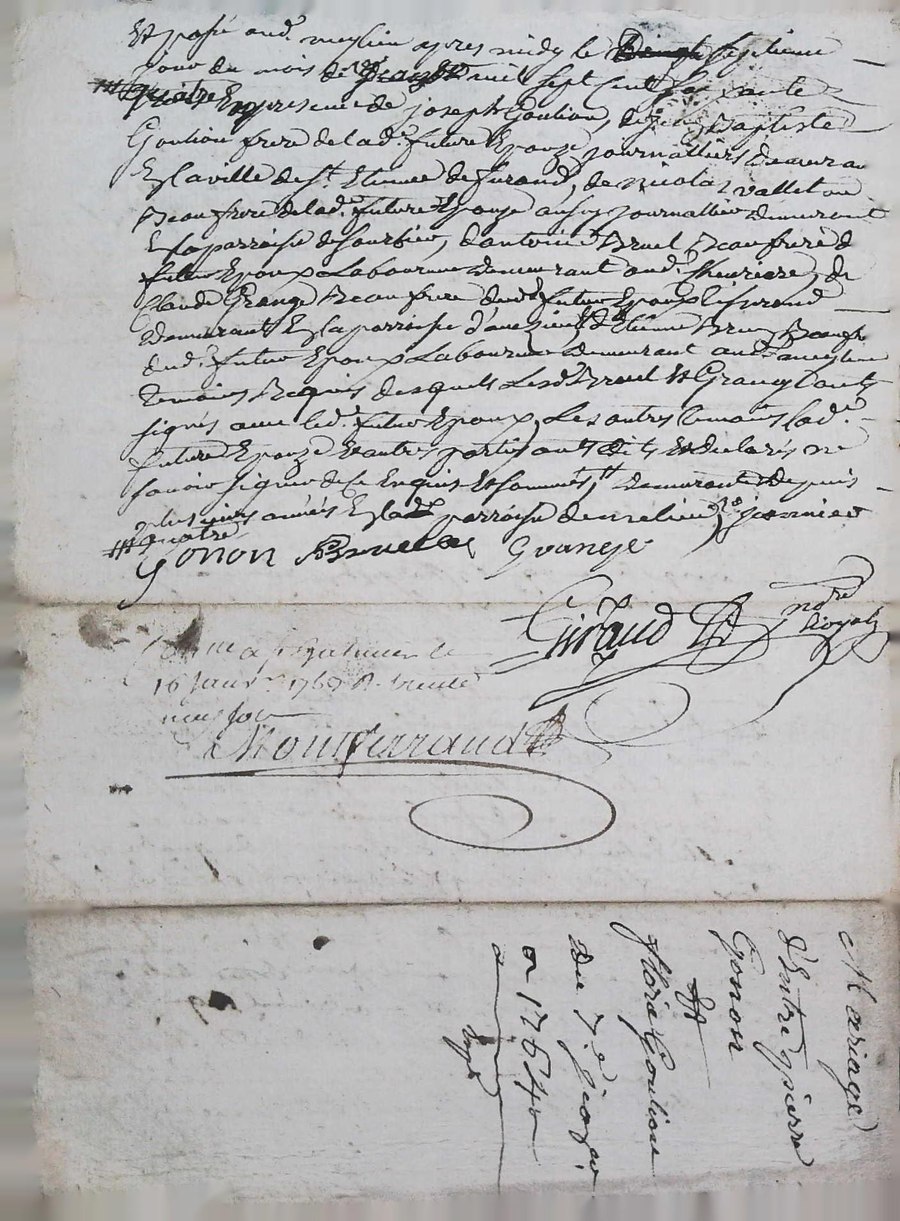 Et passé aud. meylieu apres midy le septieme
jour du mois de mil sept cent soixante
quatre En presence de joseph Goulion, de jean Baptiste
Goulion frere de lad. future Epouze journalliers demeuran
En la ville de st. Etienne de furand, de nicolas vallet
Beaufrere de lad.e future Epouze aussy journallier demeurant
En la parroise de Sorbier, d'antoine Bruel Beaufrere d
futur Epoux Laboureur demeurant aud. , de
Claude Grange Beaufrere dud. futur Epoux
demeurant En la parroise d'aveizieu, d'Etienne Beaufr
dud. futur Epoux Laboureur demeurant aud. meylieu
temoins Requis desquels Lesd. Bruel Et Grange ont
signés avec led. futur Epoux, Les autres temoins lad.e
future Epouze Et autres parties ont dit Et declarés ne
savoir signer de ce Enquis Et sommés, demeurant depuis
plusieurs années En lad. parroise de janvier
quatre
Gonon Bruel Grange
Giraud
nore Royal
a le
16 janv. 1764 R. treute
neuf sols
Montferrand
Mariage
d'Entre pierre
Gonon
Et
florie Goulion
Du 7e janv.
1764